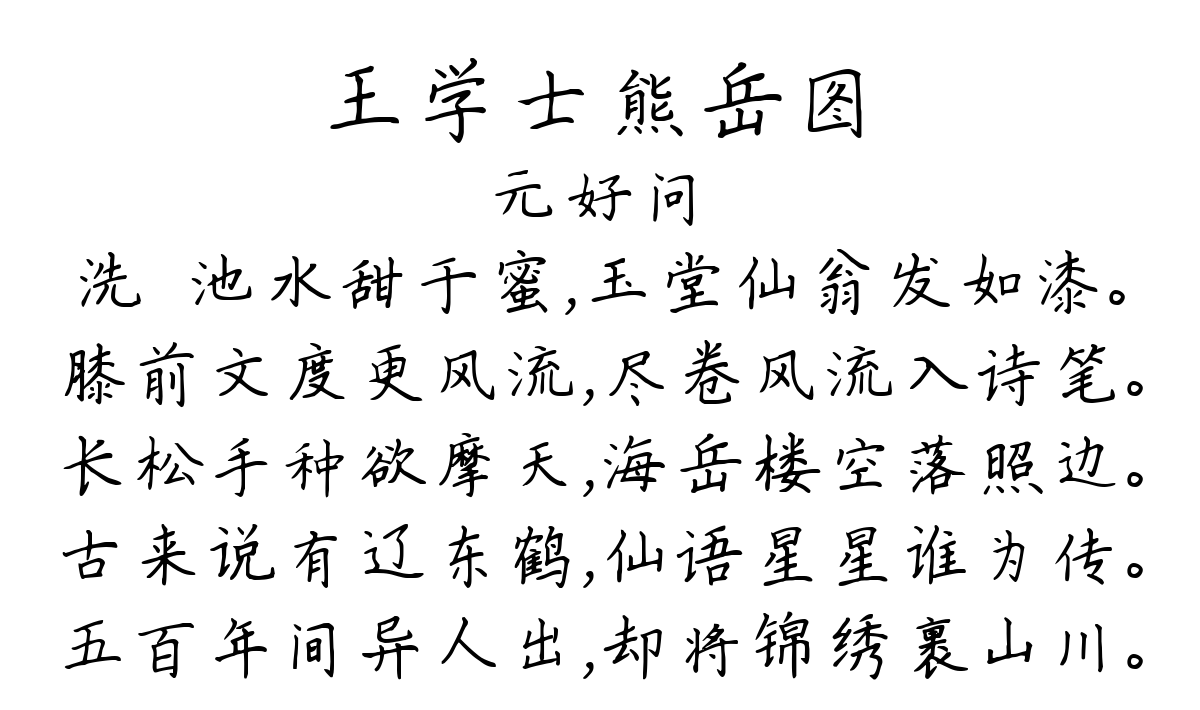 王学士熊岳图
元好问
洗 池水甜于蜜,玉堂仙翁发如漆。
膝前文度更风流,尽卷风流入诗笔。
长松手种欲摩天,海岳楼空落照边。
古来说有辽东鹤,仙语星星谁为传。
五百年间异人出,却将锦绣裹山川。